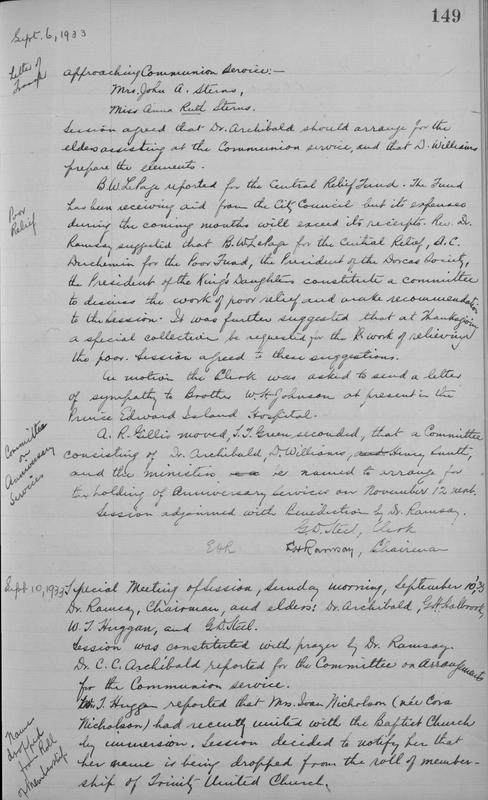 149
Sept. 6, 1933
Letter of
Transfer
approaching Communion Service:—
Mrs. John A. Sterns,
Miss Anna Ruth Sterns.
Session agreed that Dr. Archibald should arrange for the
elders assisting at the Communion service, and that D. Williams
prepare the elements.
Poor
Relief
B. W. LePage reported for the Central Relief Fund. The Fund
has been receiving aid from the City Council but its expenses
during the coming months will exceed its receipts. Rev. Dr.
Ramsay suggested that B. W. LePage for the Central Relief, A. C.
Duchemin for the Poor Fund, the President of the Dorcas Society,
the President of the King's Daughters constitute a committee
to discuss the work of poor relief and make recommendation
to the Session. It was further suggested that at Thanksgiving
a special collection be requested for the work of relieving
the poor. Session agreed to these suggestions.
On motion the Clerk was asked to send a letter
of sympathy to Brother W. H. Johnson at present in the
Prince Edward Island Hospital.
Committee
on
Anniversary
Services
A. R. Gillis moved, T. T. Green seconded, that a Committee
consisting of Dr. Archibald, D. Williams, and Henry Smith,
and the minister be named to arrange for
the holding of Anniversary Services on November 12 next.
Session adjourned with Benediction by Dr. Ramsay.
G. D. Steel, Clerk
Ramsay, Chairman
Sept. 10, 1933
Special Meeting of Session, Sunday morning, September 10, '33
Dr. Ramsay, Chairman, and elders: Dr. Archibald, G. H. Holbrook,
W. T. Huggan, and G. D. Steel.
Session was constituted with prayer by Dr. Ramsay.
Dr. C. C. Archibald reported for the Committee on arrangements
for the Communion service.
Name
dropped
from Roll
of Membership
W. T. Huggan reported that Mrs. Ivan Nicholson (née Cora
Nicholson) had recently united with the Baptist Church
by immersion. Session decided to notify her that
her name is being dropped from the roll of member-
ship of Trinity United Church.